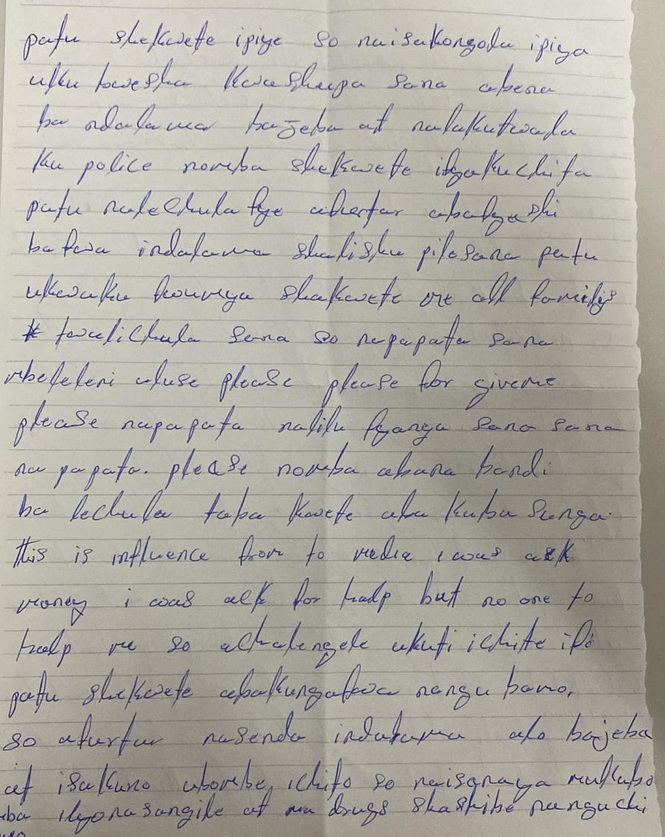 patu shekwete ipiye so naisakongola ipiya
uku bweshu Kwashupa sana abena
ba ndalama bajeba at nalakutwala
ku police nomba shekwete ifyakuchita
patu nalechula fye
ba fwa indalama shalishu pilesana patu
ukwaku shekwete me all family
twalichula sana so napapata sana
mbeleleni uluse please please for giveme
please napapata nalilu fyanya sana sana
na papata. please nomba abana bandi
ba lechula taba kwete aba kuba sunga.
this is influence from to media i was ask
money i was ask for halp but no one to
halp me so ukuti ichite ifi
patu shekwete abakungafwa nangu bamo,
so aturtur nasenda indalama abo bajeba
at isakuno ubombe, ichito so naisanaya
ilyo nasangile at ma drugs shashibe nanguchi